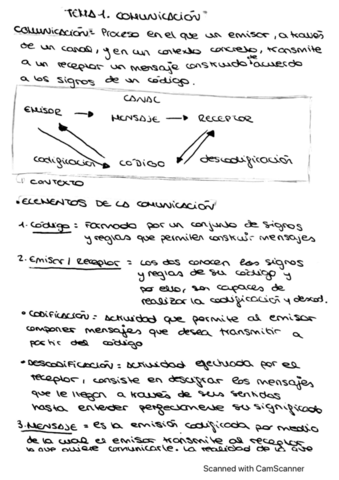 TEMA 1. COMUNICACIÓN
COMUNICACIÓN = Proceso en el que un emisor, a través
de un canal, y en un contexto concreto, transmite
a un receptor un mensaje construido de acuerdo
a los signos de un código.
CANAL
EMISOR → MENSAJE → RECEPTOR
codificación CÓDIGO descodificación
CONTEXTO
• ELEMENTOS DE LA COMUNICACIÓN
1. Código = Formado por un conjunto de signos
y reglas que permiten construir mensajes
2. Emisor / Receptor = Los dos conocen los signos
y reglas de su código y
por ello, son capaces de
realizar la codificación y descod.
• CODIFICACIÓN = Actividad que permite al emisor
componer mensajes que desea transmitir a
partir del código
• DESCODIFICACIÓN = Actividad efectuada por el
receptor, consiste en descifrar los mensajes
que le llegan a través de sus sentidos
hasta entender perfectamente su significado
3. MENSAJE = Es la emisión codificada por medio
de la cual el emisor transmite al receptor
lo que quiere comunicarle. La realidad de la que
Scanned with CamScanner